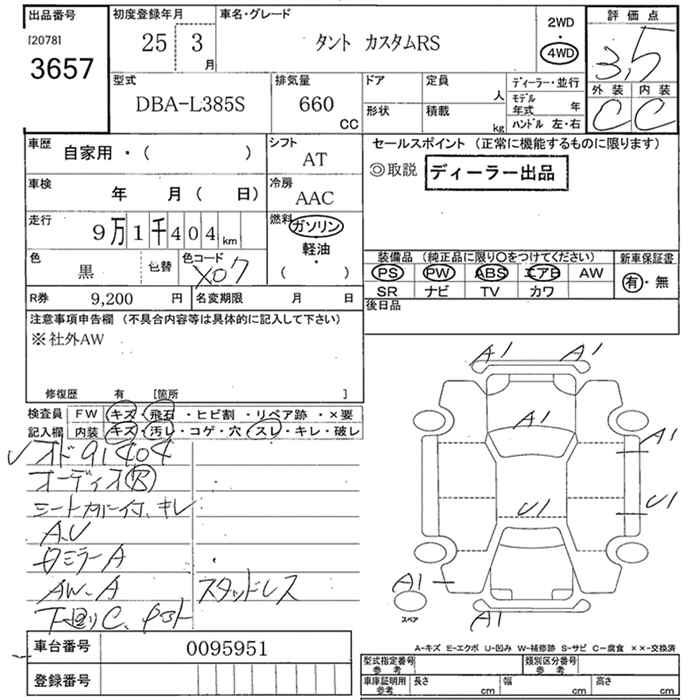 出品番号
[2078]
3657
初度登録年月
25 3
月
車名・グレード
タント カスタムRS
2WD
・
4WD
評価点
3.5
外装 内装
C C
型式
DBA-L385S
排気量
660
CC
ドア
定員
人
形状
積載
kg
ディーラー・並行
モデル
年式 年
ハンドル 左・右
車歴
自家用・( )
シフト
AT
車検
年 月( 日)
冷房
AAC
走行
9万1千404km
燃料
ガソリン
・
軽油
・
( )
色
黒
色替
色コード
X07
R券 9,200 円
名変期限 月 日
セールスポイント (正常に機能するものに限ります)
◎取説 ディーラー出品
装備品 (純正品に限り○をつけてください)
PS PW ABS エアB AW
SR ナビ TV カワ
新車保証書
有・無
後日品
注意事項申告欄 (不具合内容等は具体的に記入して下さい)
※社外AW
修復歴 有 [箇所 ]
検査員
記入欄
FW キズ・飛石・ヒビ割・リペア跡・×要
内装 キズ・汚レ・コゲ・穴・スレ・キレ・破レ
オド91404
オーディオR
シートカバー付、キレ
A.U
ミラーA
AW-A スタッドレス
下廻りC
車台番号 0095951
登録番号
A1 A1
A1
A1
U1
U1
A1
スペア
A1
A-キズ E-エクボ U-凹み W-補修跡 S-サビ C-腐食 ××-交換済
型式指定番号
参考
類別区分番号
参考
車庫証明用
参考
長さ cm
幅 cm
高さ cm